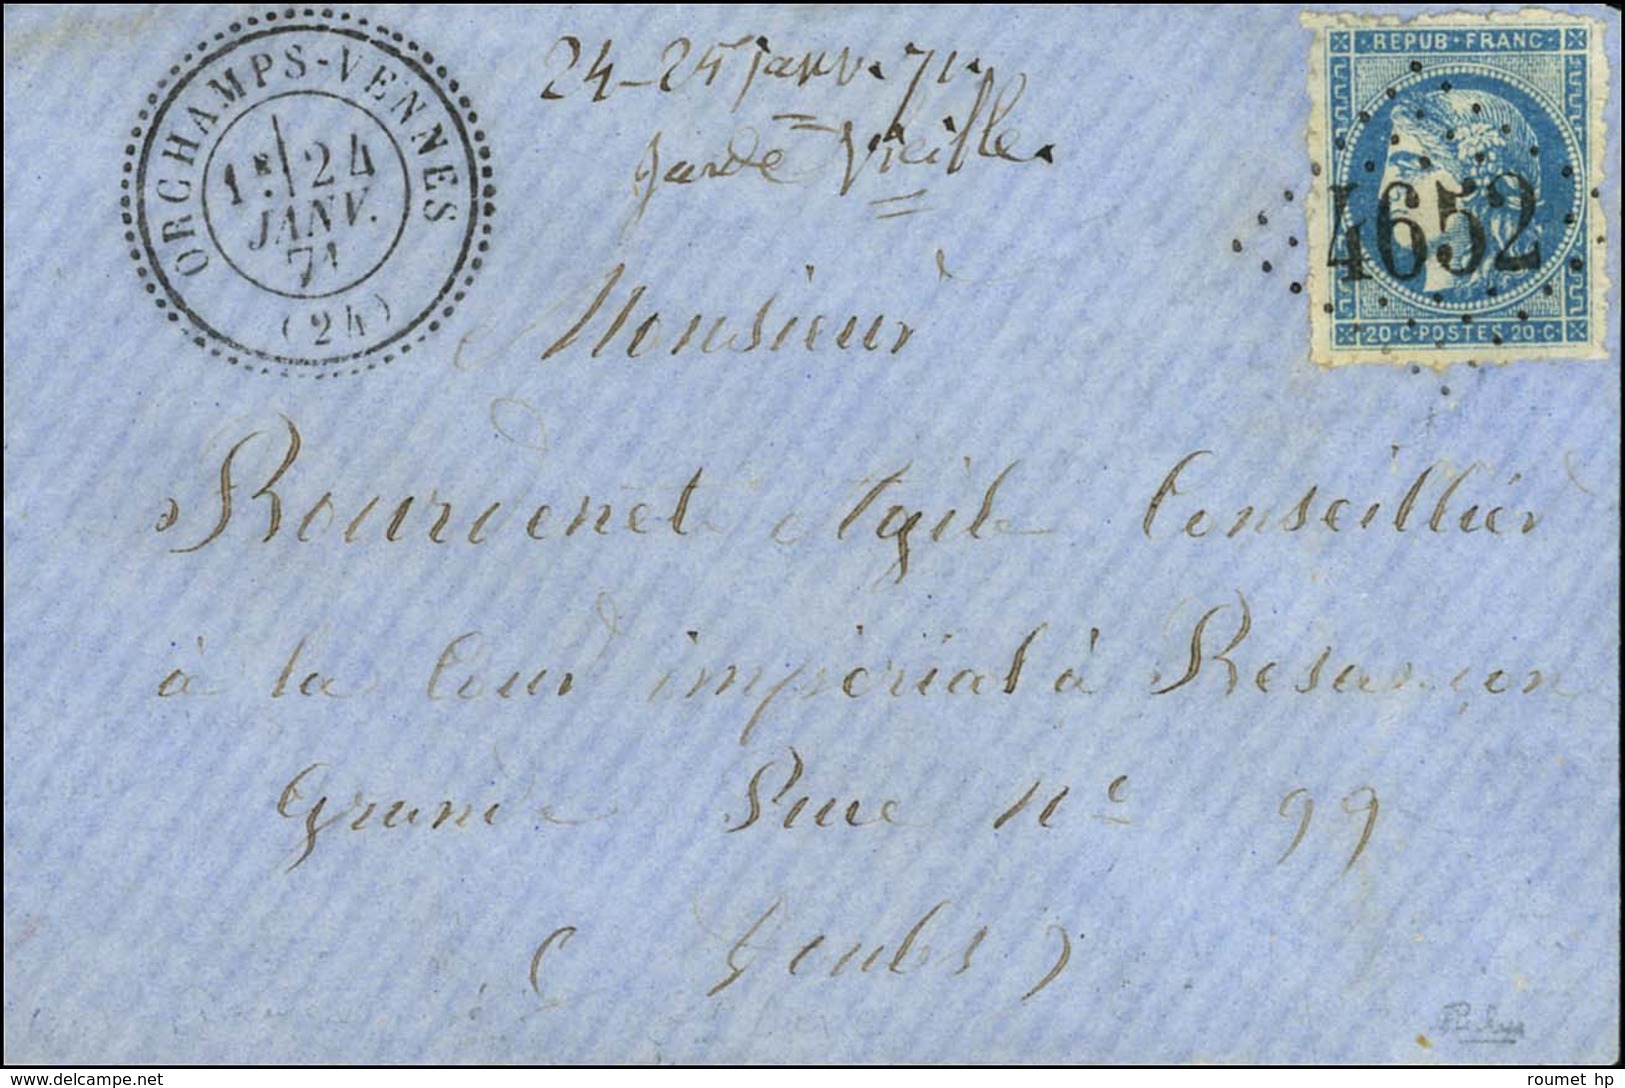 ORCHAMPS-VENNES
1E 24
JANV.
71
(24)
24-25 janv. 71.
garde Vieille.
REPUB·FRANC·
4652
20·C·POSTES·20·C
Monsieur
Bourdenet Conseillier
à la Cour impérial à Besançon
Grande Rue N° 99
(Doubs)
roumet hp